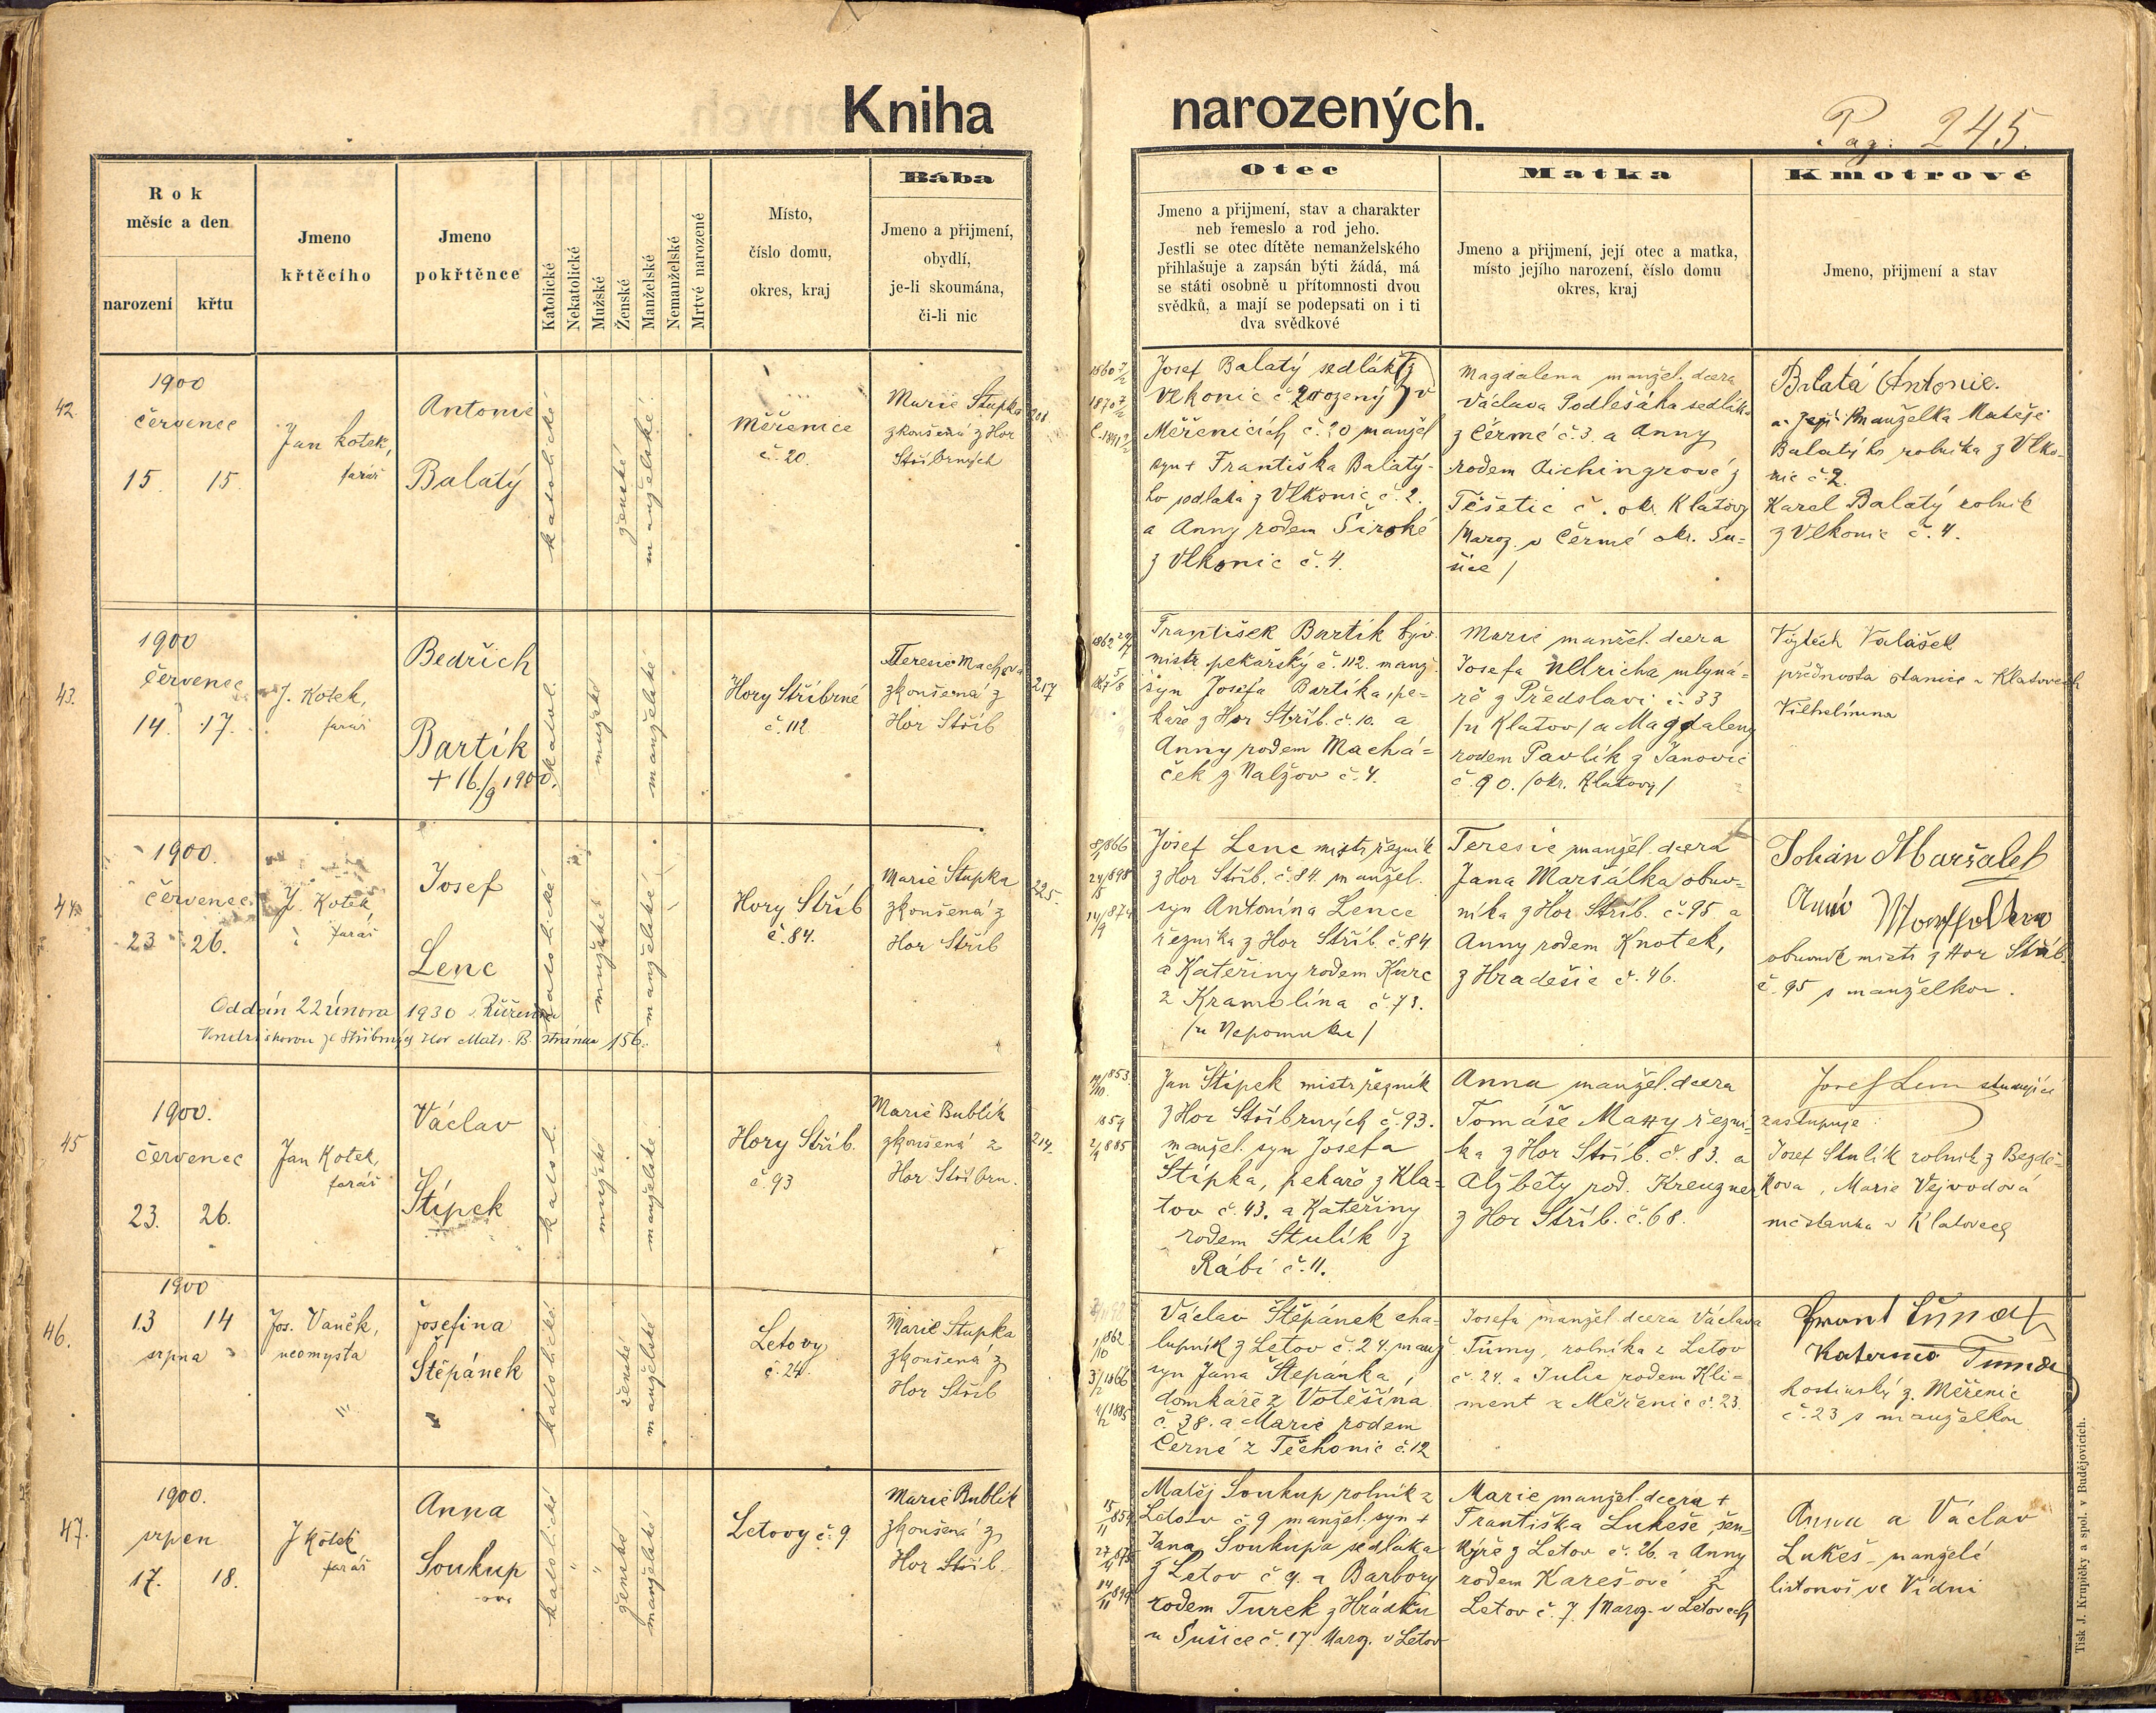 Kniha narozených.
Pag: 245.
Rok
měsíc a den
narození
křtu
Jmeno
křtěcího
Jmeno
pokřtěnce
Katolické
Nekatolické
Mužské
Ženské
Manželské
Nemanželské
Mrtvé narozené
Místo,
číslo domu,
okres, kraj
Bába
Jmeno a přijmení,
obydlí,
je-li skoumána,
či-li nic
Otec
Jmeno a přijmení, stav a charakter
neb řemeslo a rod jeho.
Jestli se otec dítěte nemanželského
přihlašuje a zapsán býti žádá, má
se státi osobně u přítomnosti dvou
svědků, a mají se podepsati on i ti
dva svědkové
Matka
Jmeno a přijmení, její otec a matka,
místo jejího narození, číslo domu
okres, kraj
Kmotrové
Jmeno, přijmení a stav
42.
1900
červenec
15. 15.
Jan Kotek,
farář
Antonie
Balatý
katolické
ženské
manželské
Měřenice
č. 20.
Marie Stupka
zkoušená z Hor
Stříbrných
Josef Balatý sedlák z
Vlkonic č. 2 rozený v
Měřenicích č. 20 manžel
syn + Františka Balatý-
ho sedláka z Vlkonic č. 2.
a Anny rodem Široké
z Vlkonic č. 4.
Magdalena manžel. dcera
Václava Podlešáka sedláka
z Čermé č. 3. a Anny
rodem Aichingrové z
Těšetic č. okr. Klatovy
/Naroz. v Čermé okr. Su-
šice/
Balatá Antonie.
manželka Matěje
Balatýho rolníka z Vlko-
nic č. 2.
Karel Balatý rolník
z Vlkonic č. 4.
43.
1900
červenec
14. 17.
J. Kotek,
farář
Bedřich
Bartík
+ 16./9 1900.
katol.
mužské
manželské
Hory Stříbrné
č. 112
Terezie Machová
zkoušená z
Hor Stříb
217
František Bartík býv.
mistr pekařský č. 112. manž.
syn Josefa Bartíka, pe-
kaře z Hor Stříb. č. 10. a
Anny rodem Machá-
ček z Nalžov č. 4.
Marie manžel. dcera
Josefa Ullricha mlyná-
ře z Předslavi č. 33
/u Klatov/ a Magdaleny
rodem Pavlík z Janovic
č. 90. /okr. Klatovy/
Vojtěch Valášek
přednosta stanice v Klatovech
Vilhelmina
44.
1900.
červenec
23 26.
J. Kotek
farář
Josef
Lenc
katolické
mužské
manželské
Oddán 22 února 1930 s Růženou
Vondráškovou ze Stříbrných Hor Matr. B. stránka 156.
Hory Stříb
č. 84.
Marie Stupka
zkoušená z
Hor Stříb
225.
Josef Lenc mistr řezník
z Hor Stříb. č. 84. manžel.
syn Antonína Lence
řezníka z Hor Stříb. č. 84
a Kateřiny rodem Kurc
z Kramolína č. 73.
/u Nepomuku/
Teresie manžel. dcera
Jana Maršálka obuv-
níka z Hor Stříb. č. 95 a
Anny rodem Knotek,
z Hradešic č. 46.
Johan Maršalek
obuvník mistr z Hor Stříb.
č. 95 s manželkou.
45
1900.
červenec
23. 26.
Jan Kotek,
farář
Václav
Štípek
katol.
mužské
manželské
Hory Stříb.
č. 93
Marie Bublik
zkoušená z
Hor Stříbrn.
214.
Jan Štípek mistr řezník
z Hor Stříbrných č. 93.
manžel. syn Josefa
Štípka, pekaře z Kla-
tov č. 43. a Kateřiny
rodem Stulík z
Rábí č. 11.
Anna manžel. dcera
Tomáše Matty řezní-
ka z Hor Stříb. č. 83. a
Alžběty rod. Kreuzner
z Hor Stříb. č. 68.
Josef Lenc studující
zastupuje
Josef Stulík rolník z Bezdě-
kova, Marie Vejvodová
měšťanka v Klatovech
46.
1900
13 14
srpna
Jos. Vaněk,
neomysta
Josefina
Štěpánek
katolické
ženské
manželské
Letovy
č. 24.
Marie Stupka
zkoušená z
Hor Stříb
Václav Štěpánek cha-
lupník z Letov č. 24. manž
syn Jana Štěpánka,
domkáře z Votěšína
č. 38. a Marie rodem
Černé z Těchonic č. 12
Josefa manžel. dcera Václava
Tůmy, rolníka z Letov
č. 24. a Julie rodem Kli-
ment z Měřenic č. 23.
Kateřina Tuma
hostinský z Měřenic
č. 23 s manželkou
47.
1900.
srpen
17. 18.
J Kotek
farář
Anna
Soukup
-ova
katolické
ženské
manželské
Letovy č. 9.
Marie Bublik
zkoušená z
Hor Stříb.
Matěj Soukup rolník z
Letov č. 9 manžel. syn +
Jana Soukupa sedláka
z Letov č. 9. a Barbory
rodem Turek z Hrádku
u Sušice č. 17. Naroz. v Letov
Marie manžel. dcera +
Františka Lukeše šen-
kýře z Letov č. 26. a Anny
rodem Karešové z
Letov č. 7. /Naroz. v Letovech
Anna a Václav
Lukeš manželé
listonoš ve Vídni
Tisk J. Krupičky a spol. v Budějovicích.